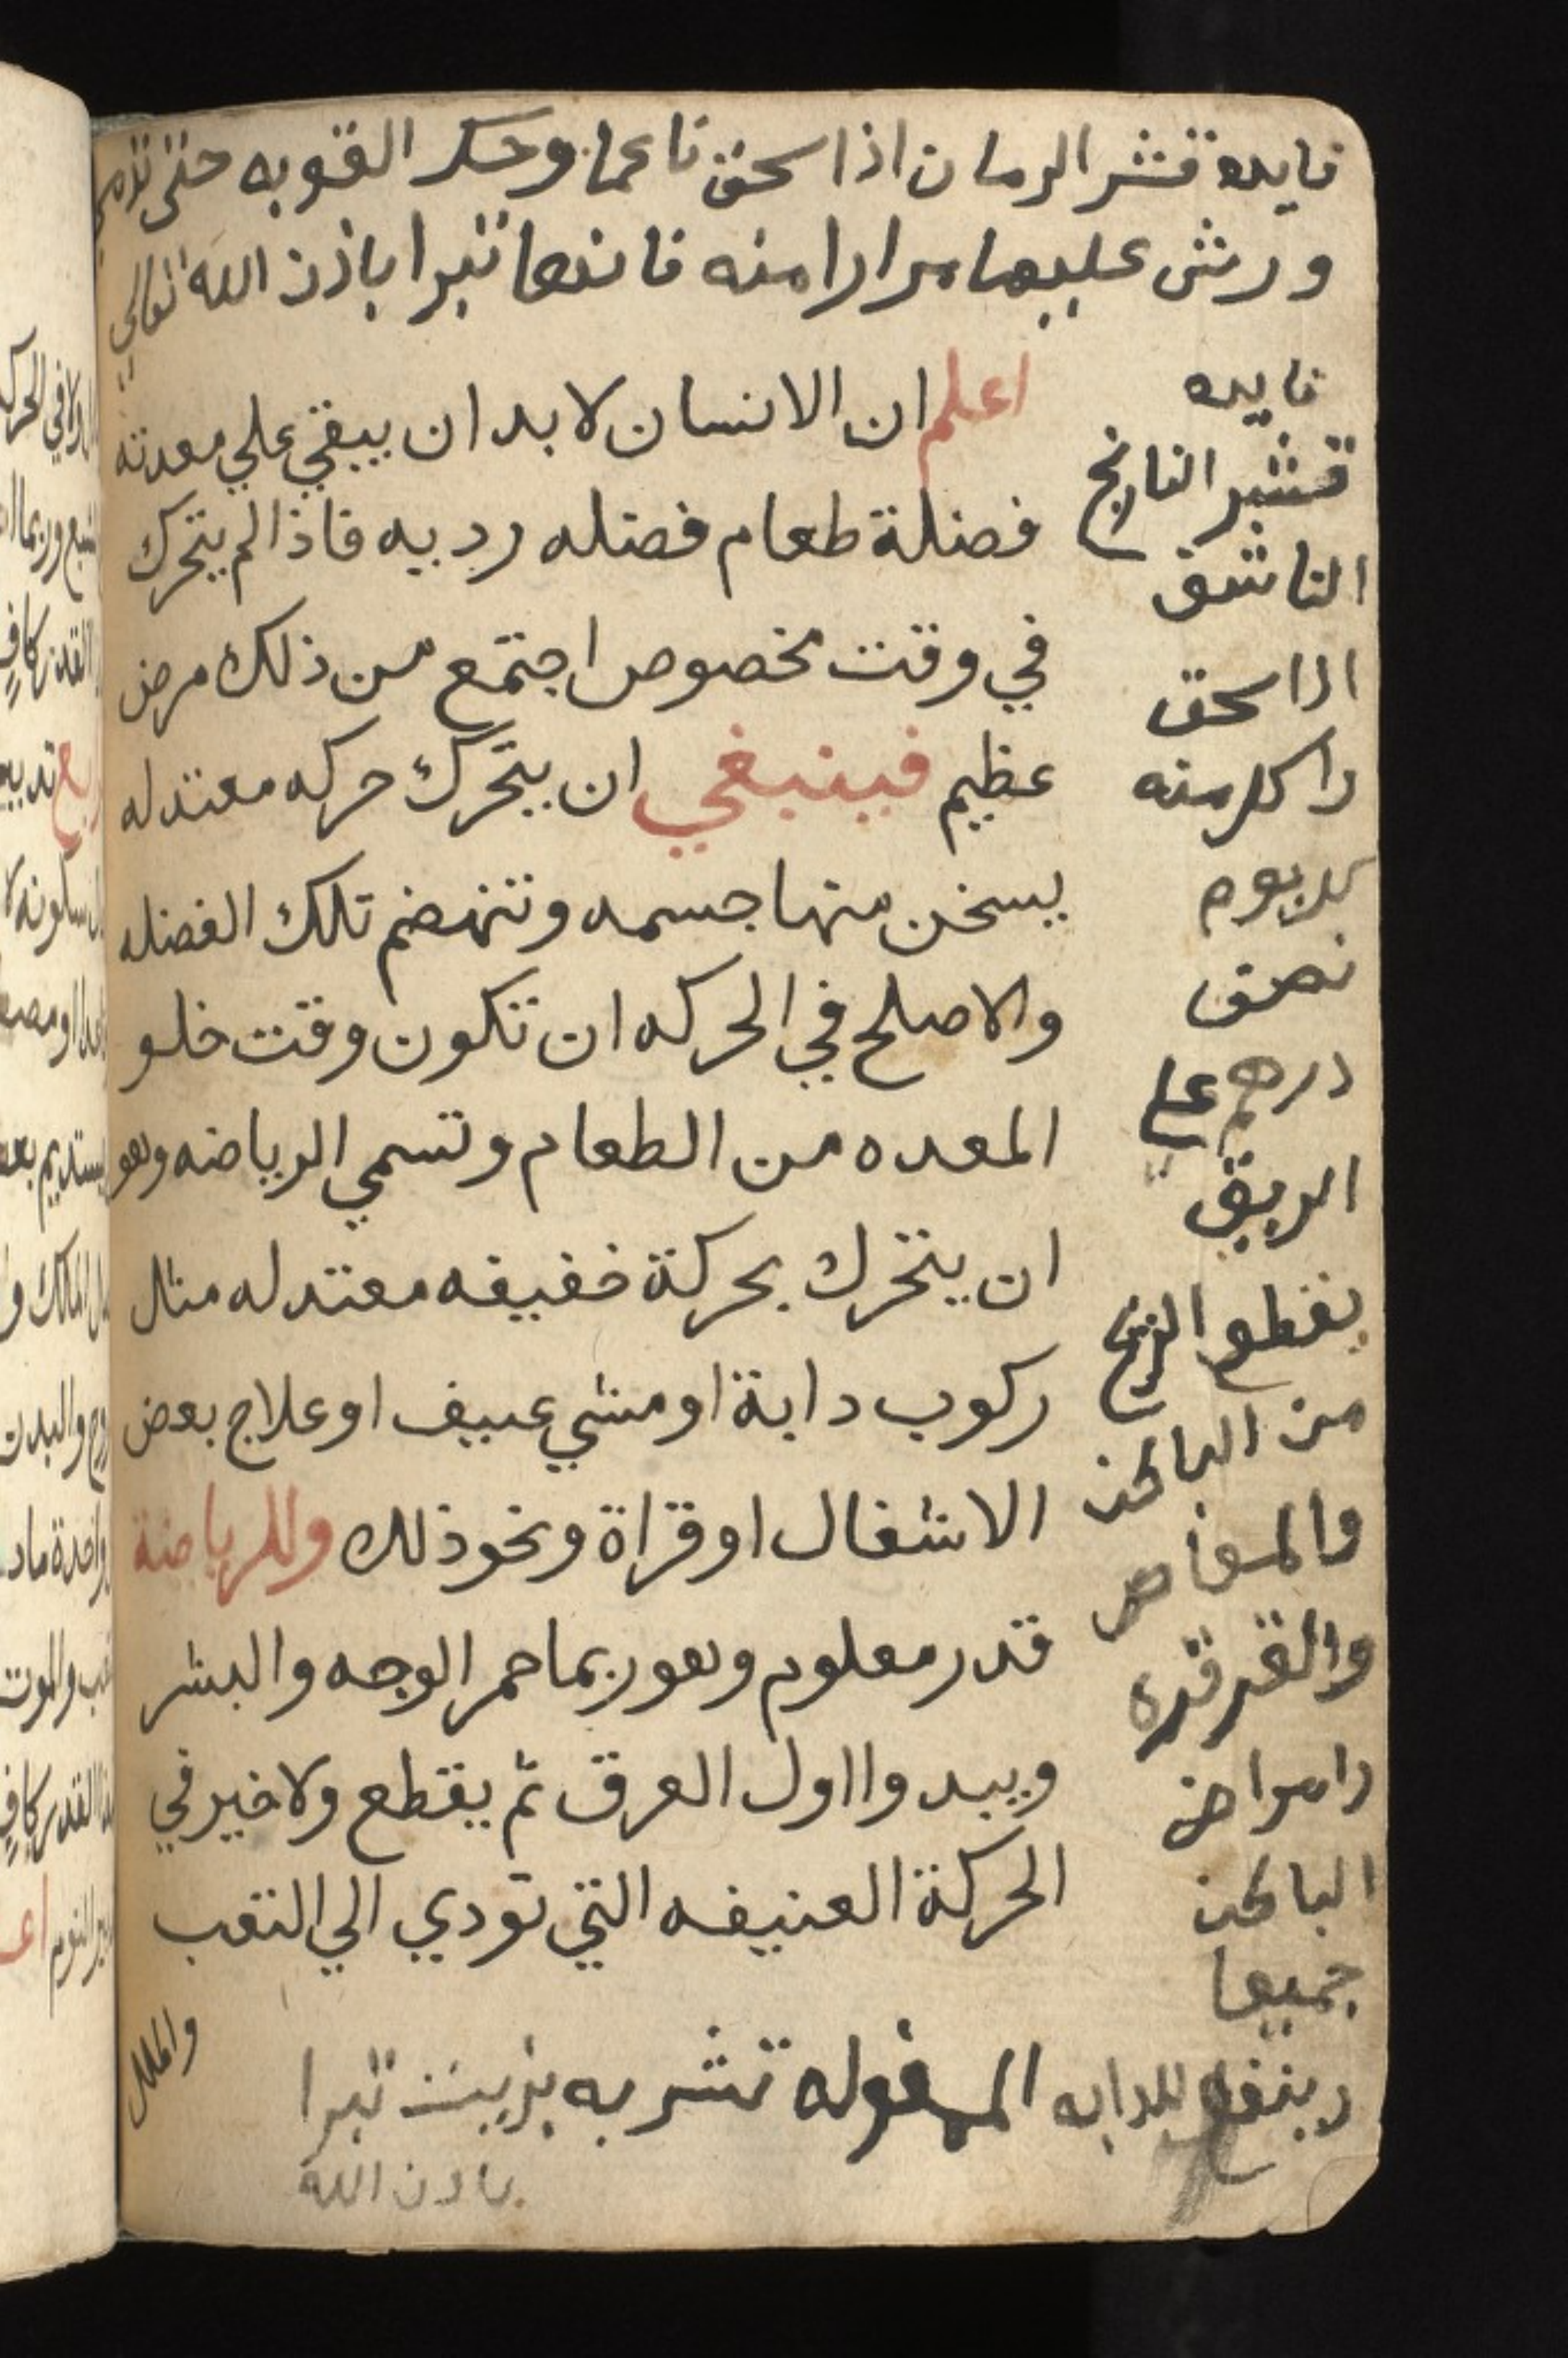 فايده قشر الرمان اذا سحق ناعما وحكر القوبه حتى تدمي
ورش عليها مرارا منه فانها تبرا باذن الله تعالي
اعلم ان الانسان لا بد ان يبقي علي معدته
فضلة طعام فضله رديه فاذا لم يتحرك
في وقت مخصوص اجتمع من ذلك مرض
عظيم فينبغي ان يتحرك حركه معتدله
يسخن منها جسمه وتنهضم تلك الفضله
والاصلح في الحركه ان تكون وقت خلو
المعده من الطعام وتسمي الرياضه وهو
ان يتحرك بحركة خفيفه معتدله مثال
ركوب دابة او مشي عييف او علاج بعض
الاشغال او قراة ونحو ذلك وللرياضة
قدر معلوم وهو ربما حمر الوجه والبشر
ويبدوا اول العرق ثم يقطع ولا خير في
الحركة العنيفه التي تودي الي التعب
والملل
فايده
قشر النارنج
الناشف
اذا سحق
واكل منه
كل يوم
نصف
درهم علي
الريق
يقطع الريح
من الباطن
والمغاص
والقرقره
وامراض
الباطن
جميعا
وينفع للدابه المغوله تشربه بزيت تبرا
باذن الله